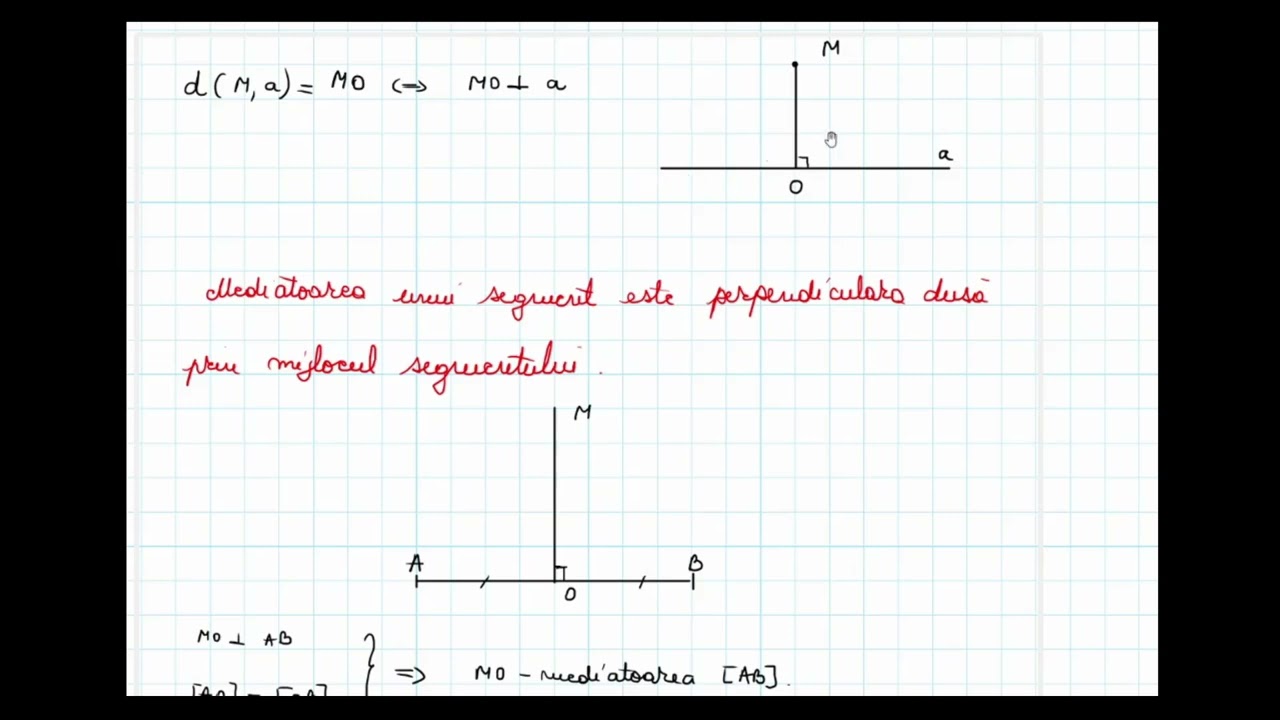 d(M,a) = MO ⇔ MO ⊥ a
M
a
O
Mediatoarea unui segment este perpendiculara dusă
prin mijlocul segmentului.
M
A
B
O
MO ⊥ AB
⇒ MO - mediatoarea [AB].